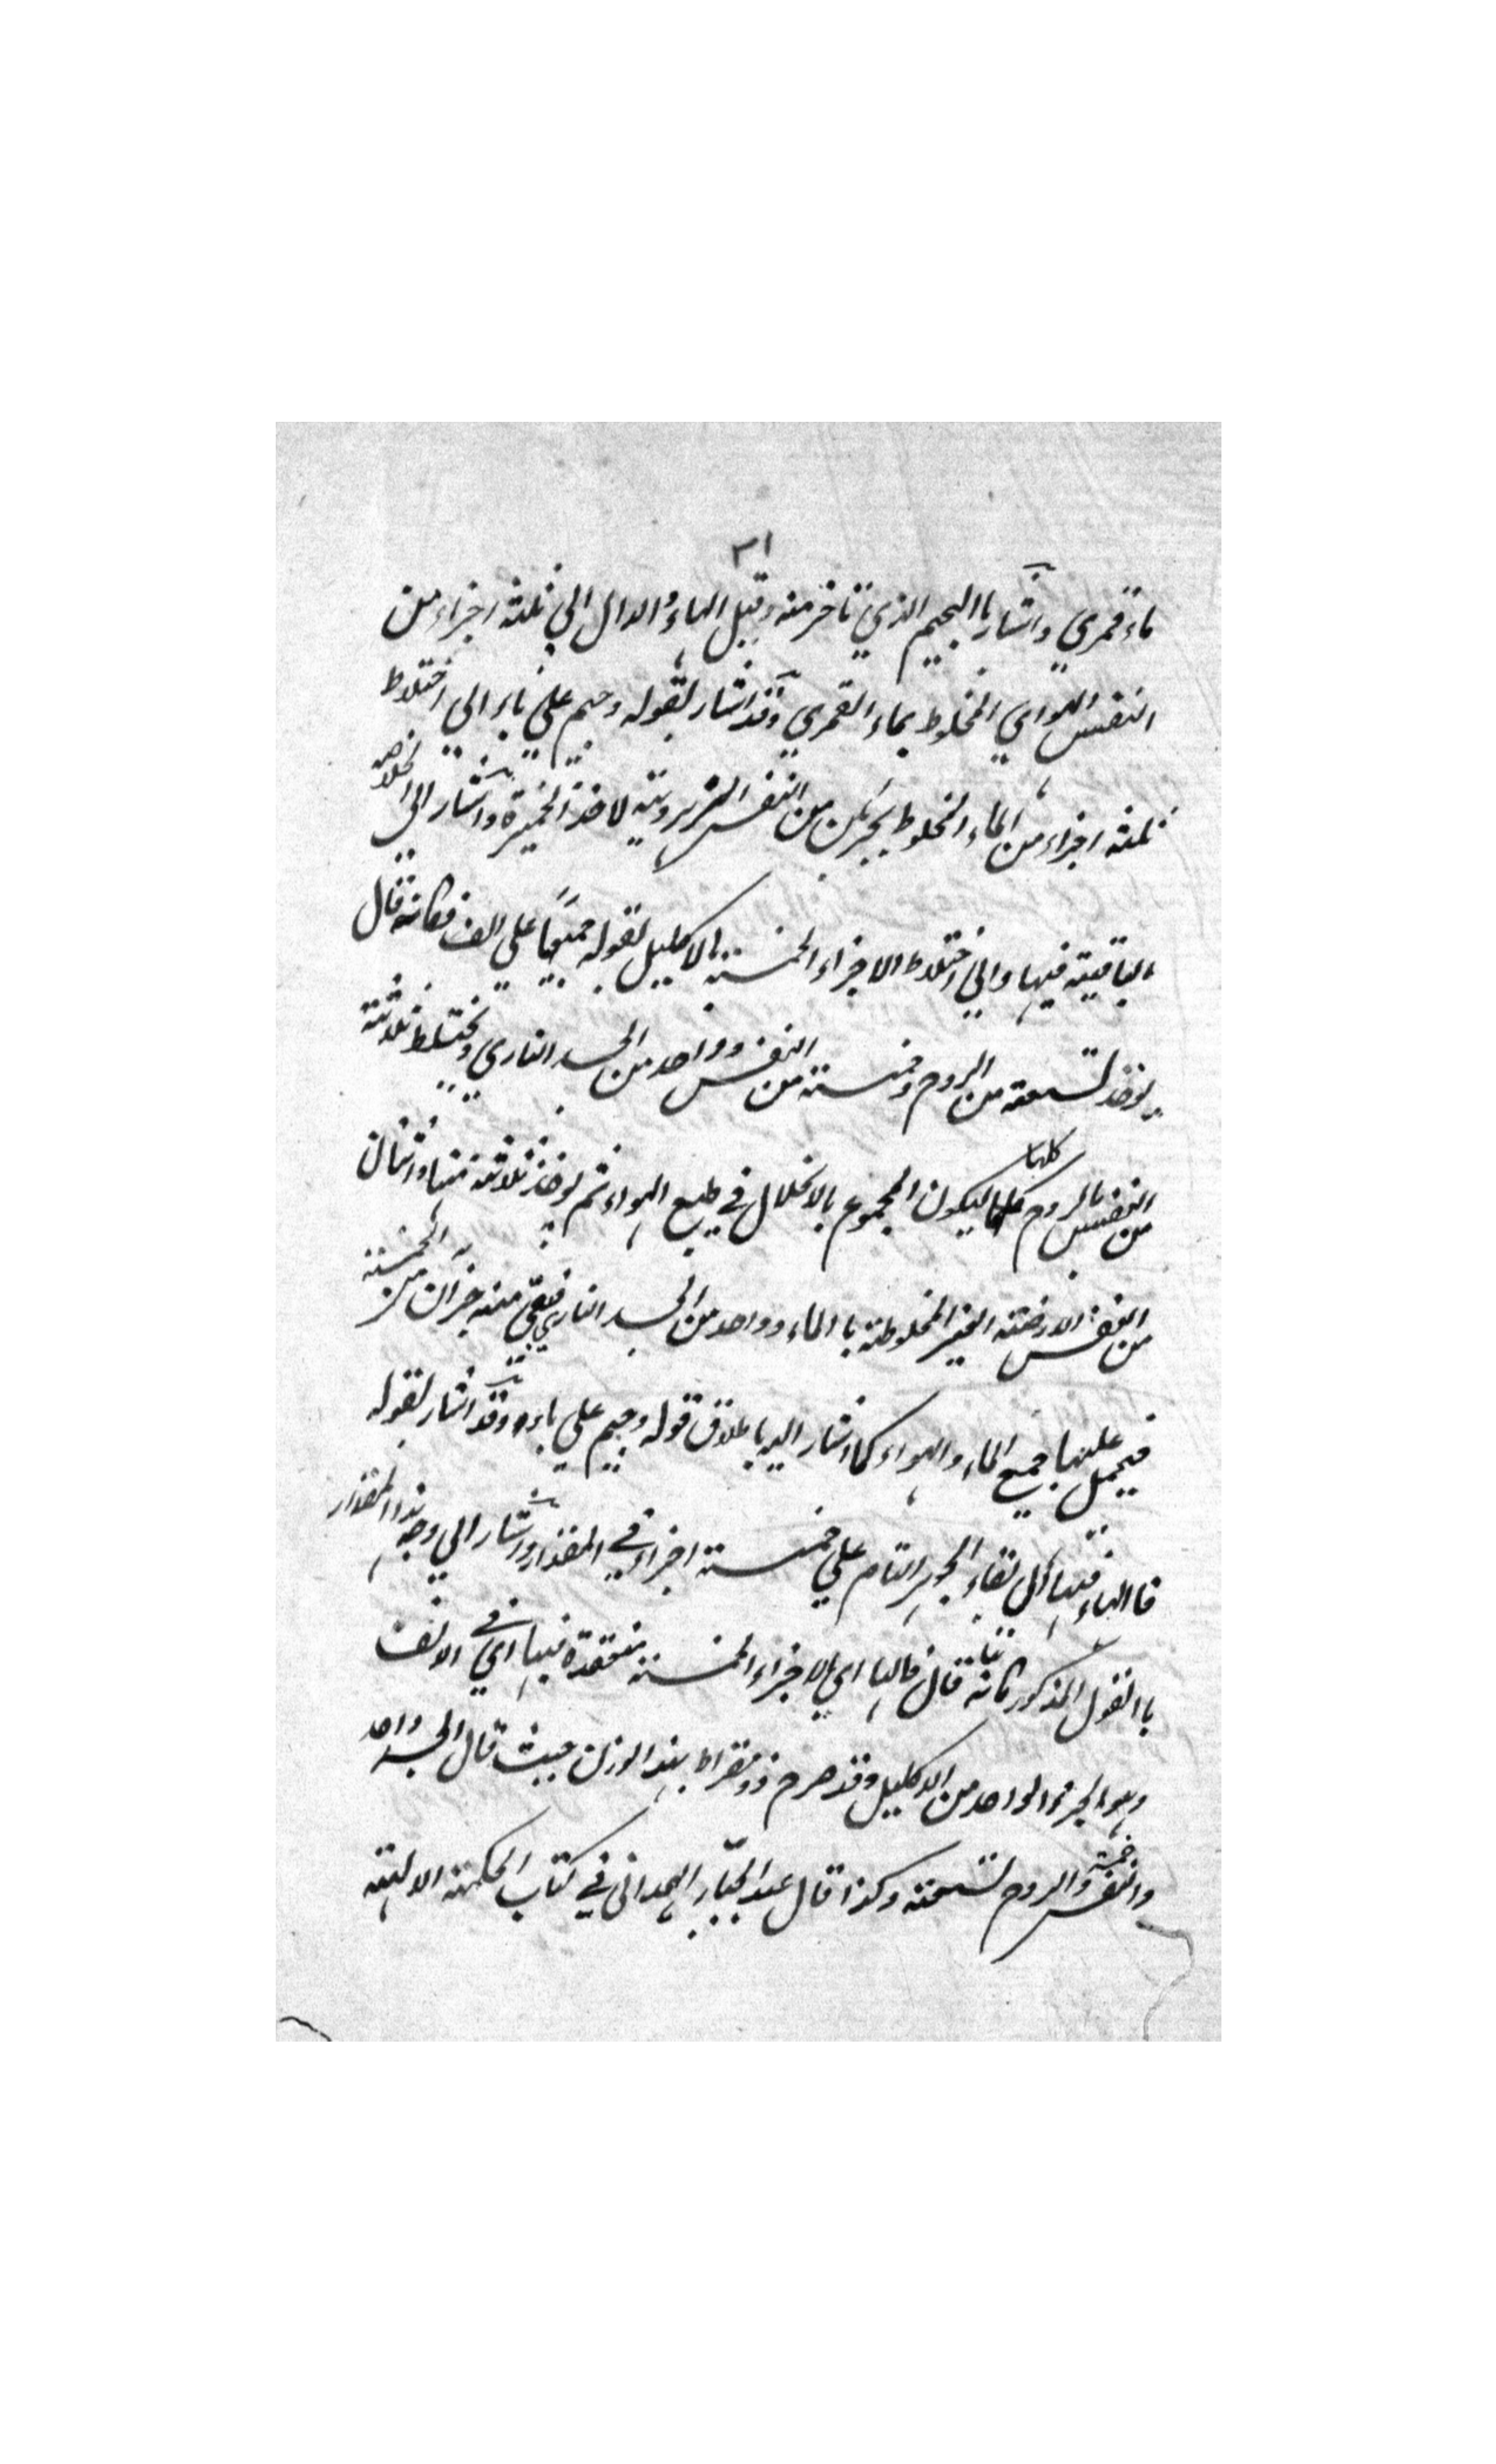 ٣١
ماء قمري واشار باالجيم الذي تاخر منه وقبل الهاء والدال الي ثلثة اجزاء من
النفس الهوائي المخلوط بماء القمري وقد اشار بقوله وجيم علي باء الي اختلاط
ثلثة اجزاء من الماء المخلوط بجزئين من النفس لاخذ الخميرة واشار الي
الباقية فيها والي اختلاط الاجزاء الخمسة بالاكليل بقوله جميعًا علي الف فكانه قال
يوخذ تسعة من الروح وخمسة من النفس وواحد من الجسد الناري ويختلط ثلاثة
من النفس بالروح كلها ليكون المجموع بالانحلال في طبع الهواء ثم يوخذ ثلاثة منها واثنان
من النفس الارضية الغير المخلوطة باالماء وواحد من الجسد الناري فبقي منه جزآن من الخمسة
فيحمل عليها جميع الماء والهواء كما اشار اليه باطلاق قوله وجيم علي باء وقد اشار بقوله
فاالهاء فيها الي بقاء الحجر التام علي خمسة اجزاء في المقدار واشار الي وجه هذا المقدار
باالقول المذكور ثانيا كانه قال فالها اي الاجزاء الخمسة منعقدة فيها اي في الالف
وهو الجزء الواحد من الاكليل وقد صرح ذومقراط بهذا الوزن حيث قال الجسد واحد
والنفس خمسة والروح تسعة وكذا قال عبد الجبار الهمداني في كتاب الحكمة الالهية